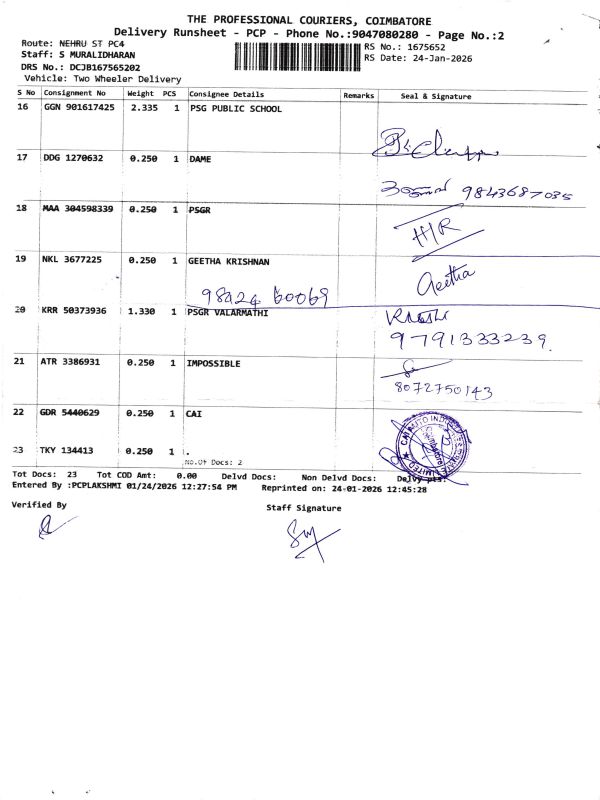 THE PROFESSIONAL COURIERS, COIMBATORE
Delivery Runsheet - PCP - Phone No.:9047080280 - Page No.:2
Route: NEHRU ST PC4
RS No.: 1675652
Staff: S MURALIDHARAN
RS Date: 24-Jan-2026
DRS No.: DCJB167565202
Vehicle: Two Wheeler Delivery
S No Consignment No Weight PCS Consignee Details Remarks Seal & Signature
16 GGN 901617425 2.335 1 PSG PUBLIC SCHOOL
17 DDG 1270632 0.250 1 DAME
9843687035
18 MAA 304598339 0.250 1 PSGR
H/R
19 NKL 3677225 0.250 1 GEETHA KRISHNAN
Geetha
98424 60069
20 KRR 50373936 1.330 1 PSGR VALARMATHI
9791333239.
21 ATR 3386931 0.250 1 IMPOSSIBLE
8072750143
22 GDR 5440629 0.250 1 CAI
CAI AUTO
LIMITED
Coimbatore
23 TKY 134413 0.250 1 .
No.Of Docs: 2
Tot Docs: 23 Tot COD Amt: 0.00 Delvd Docs: Non Delvd Docs: Delvy pts:
Entered By :PCPLAKSHMI 01/24/2026 12:27:54 PM Reprinted on: 24-01-2026 12:45:28
Verified By
Staff Signature